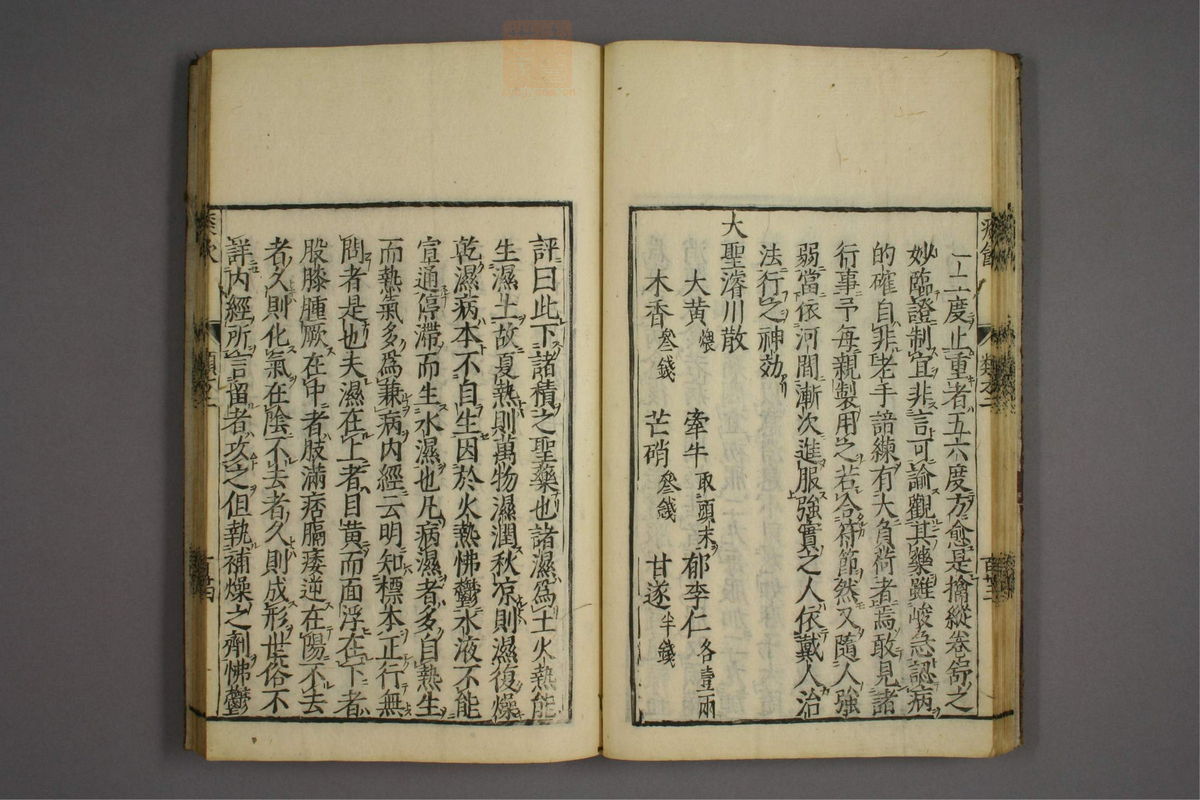 一二度止重者五六度方愈是擒縱卷舒之
妙臨證制宜非言可論觀其藥雖峻急認病
的確自非老手諳練有大負荷者焉敢見諸
行事予每親製用之若合符節然又隨人強
弱當依河間漸次進服強實之人依戴人治
法行之神効
大聖濬川散
大黄煨 牽牛取頭末 郁李仁各壹兩
木香叁錢 芒硝叁錢 甘遂半錢
評曰此下諸積之聖藥也諸濕爲土火熱能
生濕土故夏熱則萬物濕潤秋凉則濕復燥
乾濕病本不自生因於火熱怫鬱水液不能
宣通停滯而生水濕也凡病濕者多自熱生
而熱氣多爲兼病内經云明知標本正行無
問者是也夫濕在上者目黄而面浮在下者
股膝腫厥在中者肢滿痞膈痿逆在陽不去
者久則化氣在陰不去者久則成形世俗不
詳内經所言留者攻之但執補燥之劑怫鬱